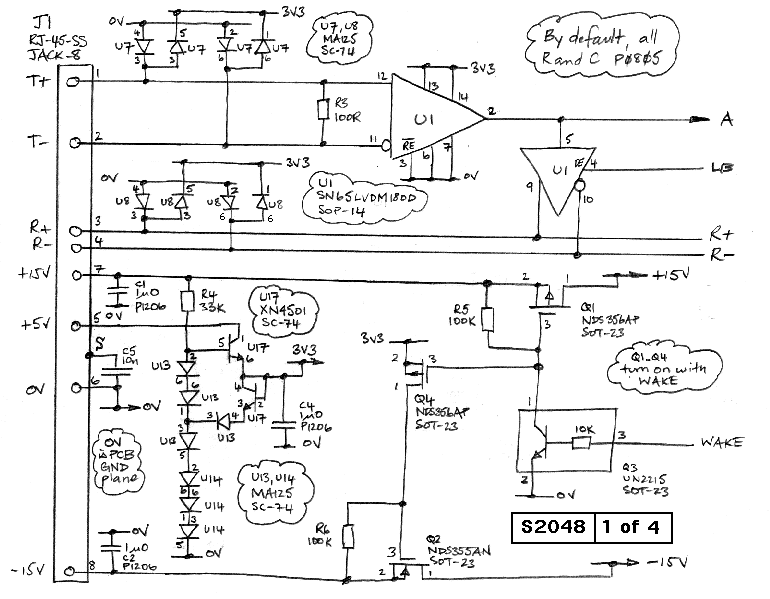 J1
RJ-45-SS
JACK-8
0V
3V3
4
5
2
1
U7
U7
U7
U7
3
3
6
6
U7, U8
MA125
SC-74
By default, all
R and C P0805
T+
1
T-
2
R3
100R
12
11
U1
13
14
3V3
RE
3
6
7
0V
2
A
5
U1
RE
4
LB
9
10
0V
3V3
4
5
2
1
U8
U8
U8
U8
3
3
6
6
U1
SN65LVDM180D
SOP-14
R+
3
R+
R-
4
R-
+15V
7
C1
1µ0
P1206
0V
R4
33K
U17
XN4501
SC-74
R5
100K
2
1
3
+15V
Q1
NDS356AP
SOT-23
+5V
5
5
U17
6
3V3
3V3
2
3
1
Q4
NDS356AP
SOT-23
Q1-Q4
turn on with
WAKE
S
C5
10n
0V
6
0V
2
U13
6
6
U13
1
3
4
U13
4
3
2
U17
C4
1µ0
P1206
0V
3
U13
5
0V
is PCB
GND
plane
U13, U14
MA125
SC-74
2
U14
6
6
U14
1
3
U14
5
0V
1
10K
3
WAKE
2
0V
Q3
UN2215
SOT-23
S2048 1 of 4
R6
100K
Q2
NDS355AN
SOT-23
3
2
1
-15V
0V
1µ0
C2
P1206
-15V
8